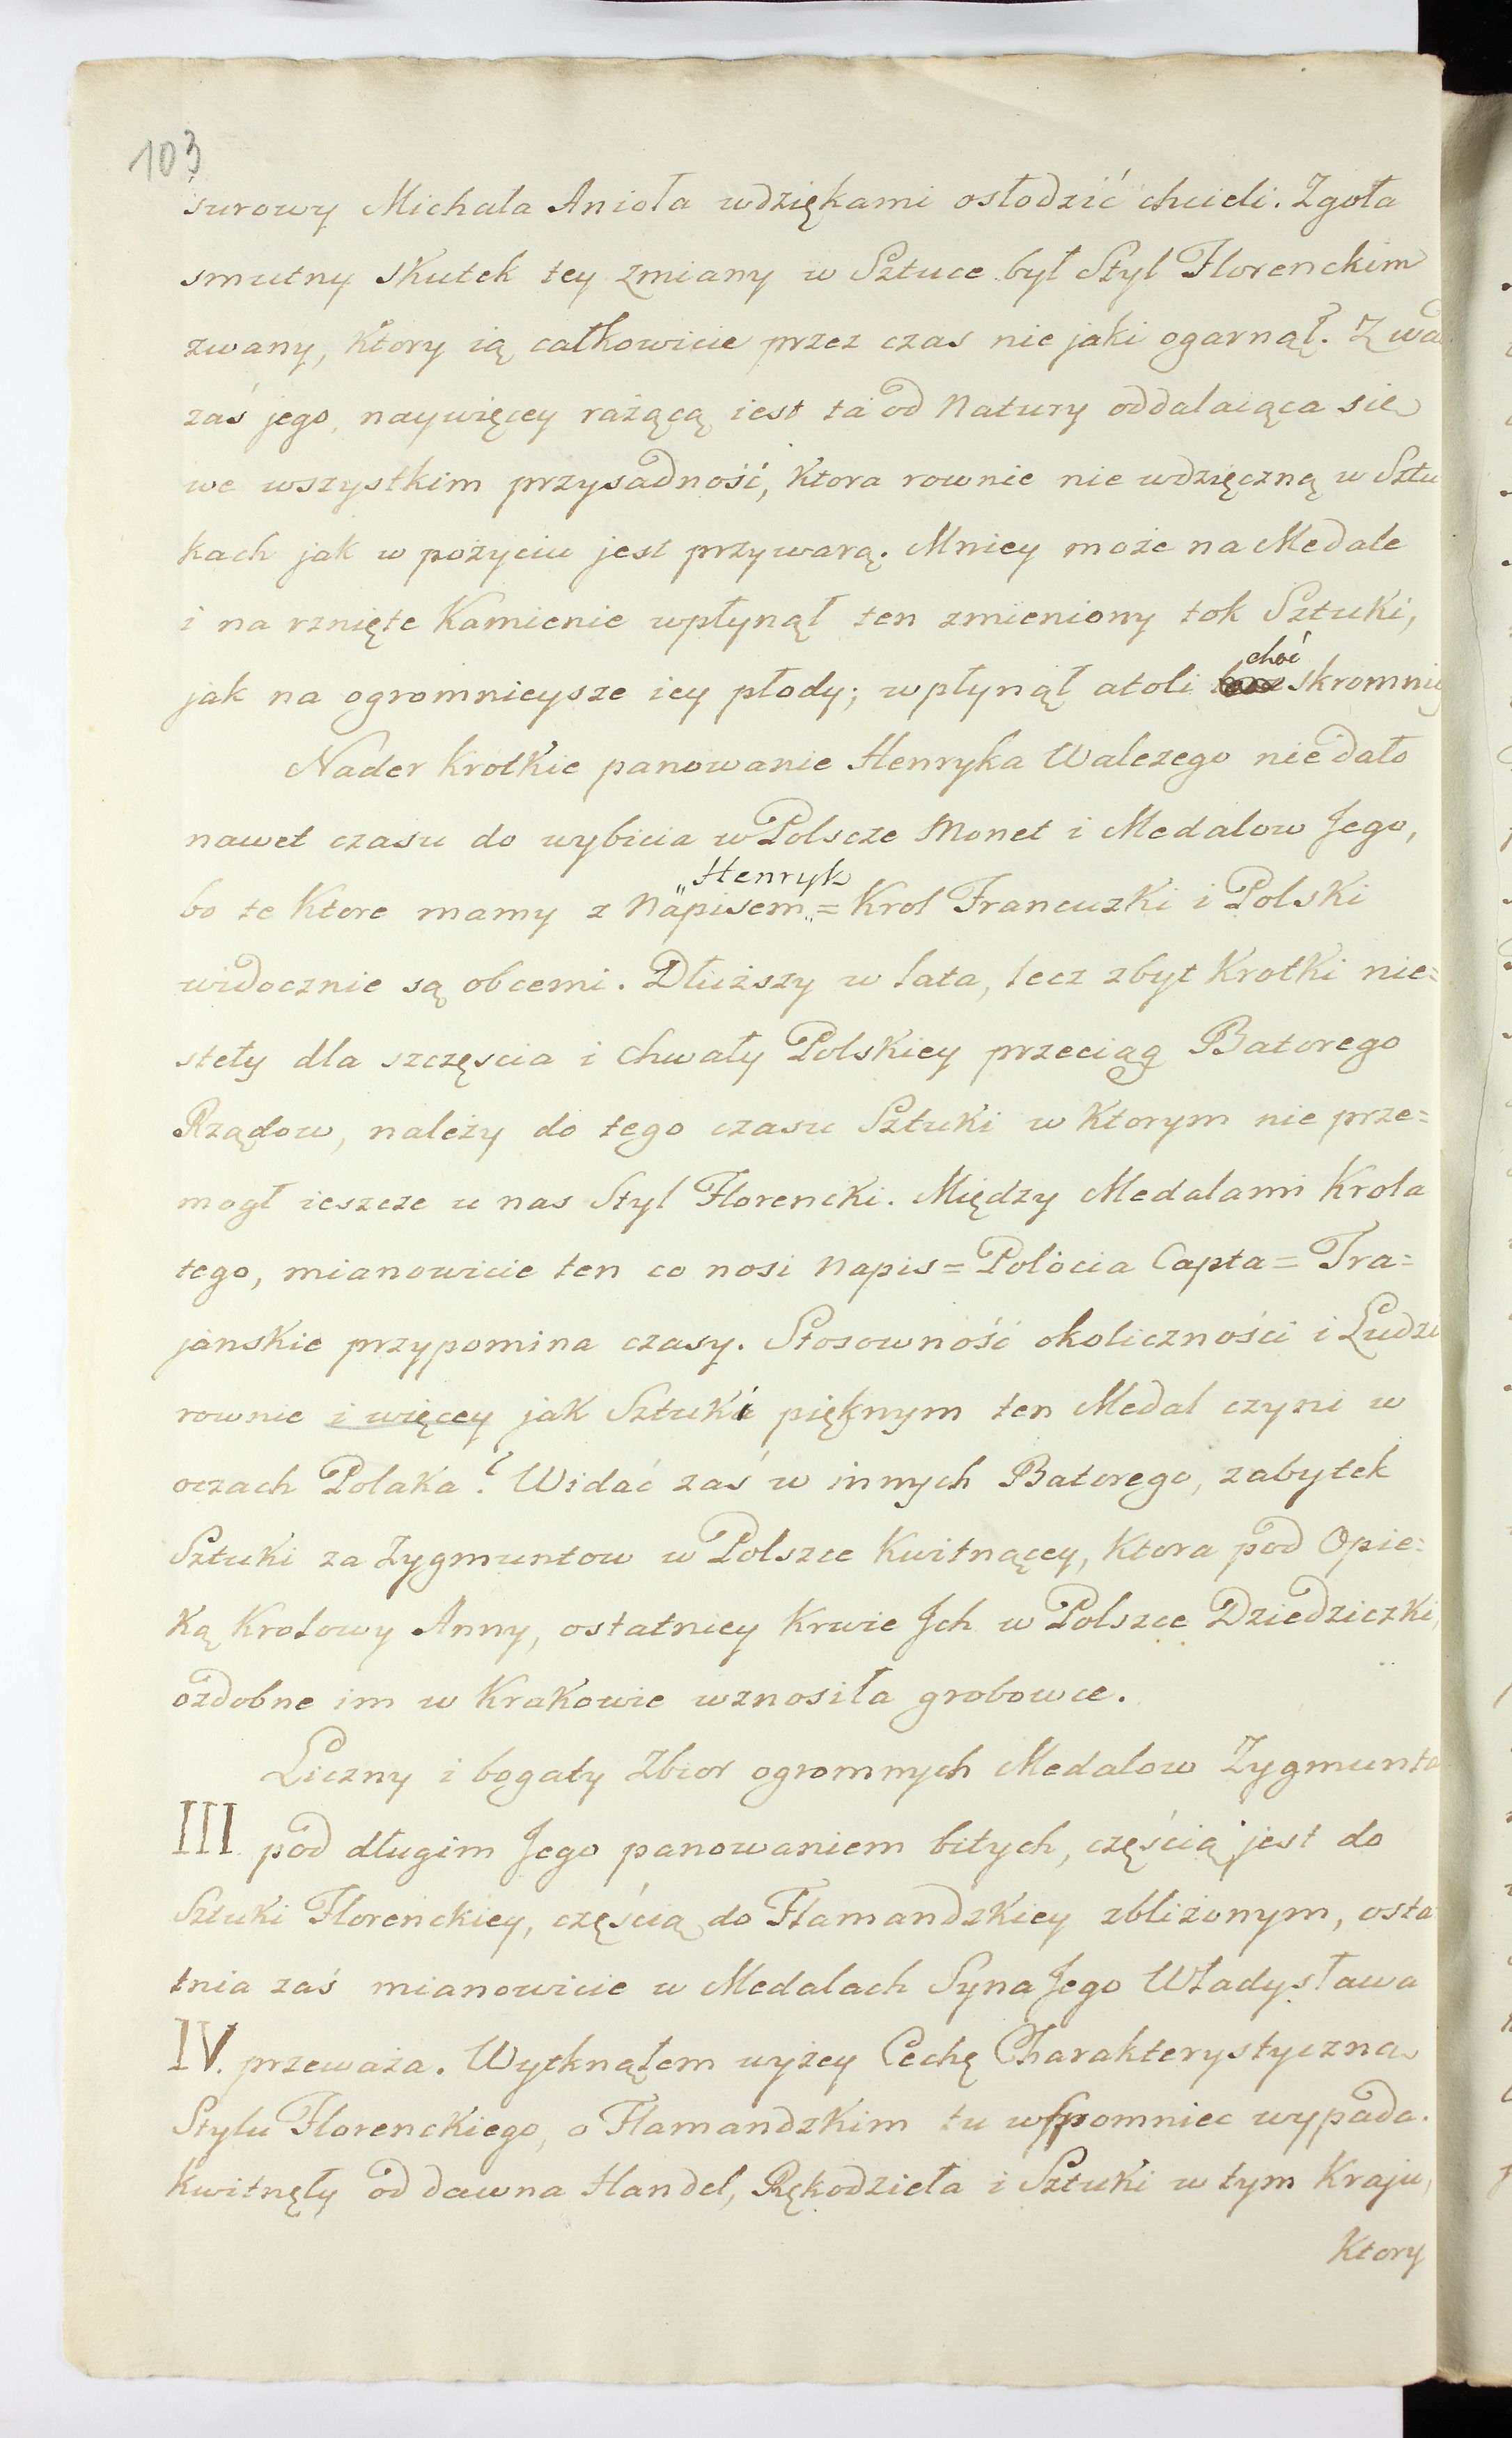 103
surowy Michała Anioła wdziękami osłodzić chcieli. Zgoła
smutny skutek tey zmiany w Sztuce był Styl Florenckim
zwany, ktory ią całkowicie przez czas nie jaki ogarnął. Z wad
zaś jego, naywięcey rażącą iest ta od Natury oddalaiąca sie
we wszystkim przysadność, ktora rownie nie wdzięczną w Sztu
kach jak w pożyciu jest przywarą. Mniey może na Medale
i na rznięte Kamienie wpłynął ten zmieniony tok Sztuki,
choć
jak na ogromnieysze iey płody; wpłynął atoli skromniey
Nader krotkie panowanie Henryka Walezego nie dało
nawet czasu do wybicia w Polscze Monet i Medalow Jego,
„Henryk
bo te ktore mamy z Napisem„= Krol Francuzki i Polski
widocznie są obcemi. Dłuższy w lata, lecz zbyt krotki nie=
stety dla szczęscia i chwały Polskiey przeciąg Batorego
Rządow, należy do tego czasu Sztuki w ktorym nie prze=
mogł ieszcze u nas Styl Florencki. Między Medalami Krola
tego, mianowicie ten co nosi Napis = Polocia Capta = Tra=
janskie przypomina czasy. Stosowność okoliczności i Ludzi
rownie i więcey jak Sztuki pięknym ten Medal czyni w
oczach Polaka. Widać zaś w innych Batorego, zabytek
Sztuki za Zygmuntow w Polszce kwitnącey, ktora pod Opie=
ką Krolowy Anny, ostatniey krwie Jch w Polszce Dziedziczki,
ozdobne im w Krakowie wznosiła grobowce.
Liczny i bogaty Zbior ogromnych Medalow Zygmunta
III pod długim Jego panowaniem bitych, częścią jest do
Sztuki Florenckiey, częścią do Flamandzkiey zbliżonym, osta
tnia zaś mianowicie w Medalach Syna Jego Władysława
IV. przeważa. Wytknąłem wyżey Cechę Charakterystyczna
Stylu Florenckiego, o Flamandzkim tu wspomniec wypada.
Kwitnęły od dawna Handel, Rękodzieła i Sztuki w tym Kraju,
Ktory